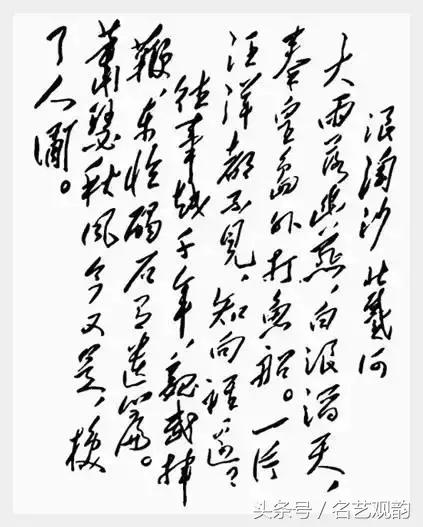 浪淘沙 北戴河
大雨落幽燕,白浪滔天,
秦皇岛外打鱼船。一片
汪洋都不见,知向谁边?
往事越千年,魏武挥
鞭,东临碣石有遗篇。
萧瑟秋风今又是,换
了人间。
头条号 / 名艺观韵